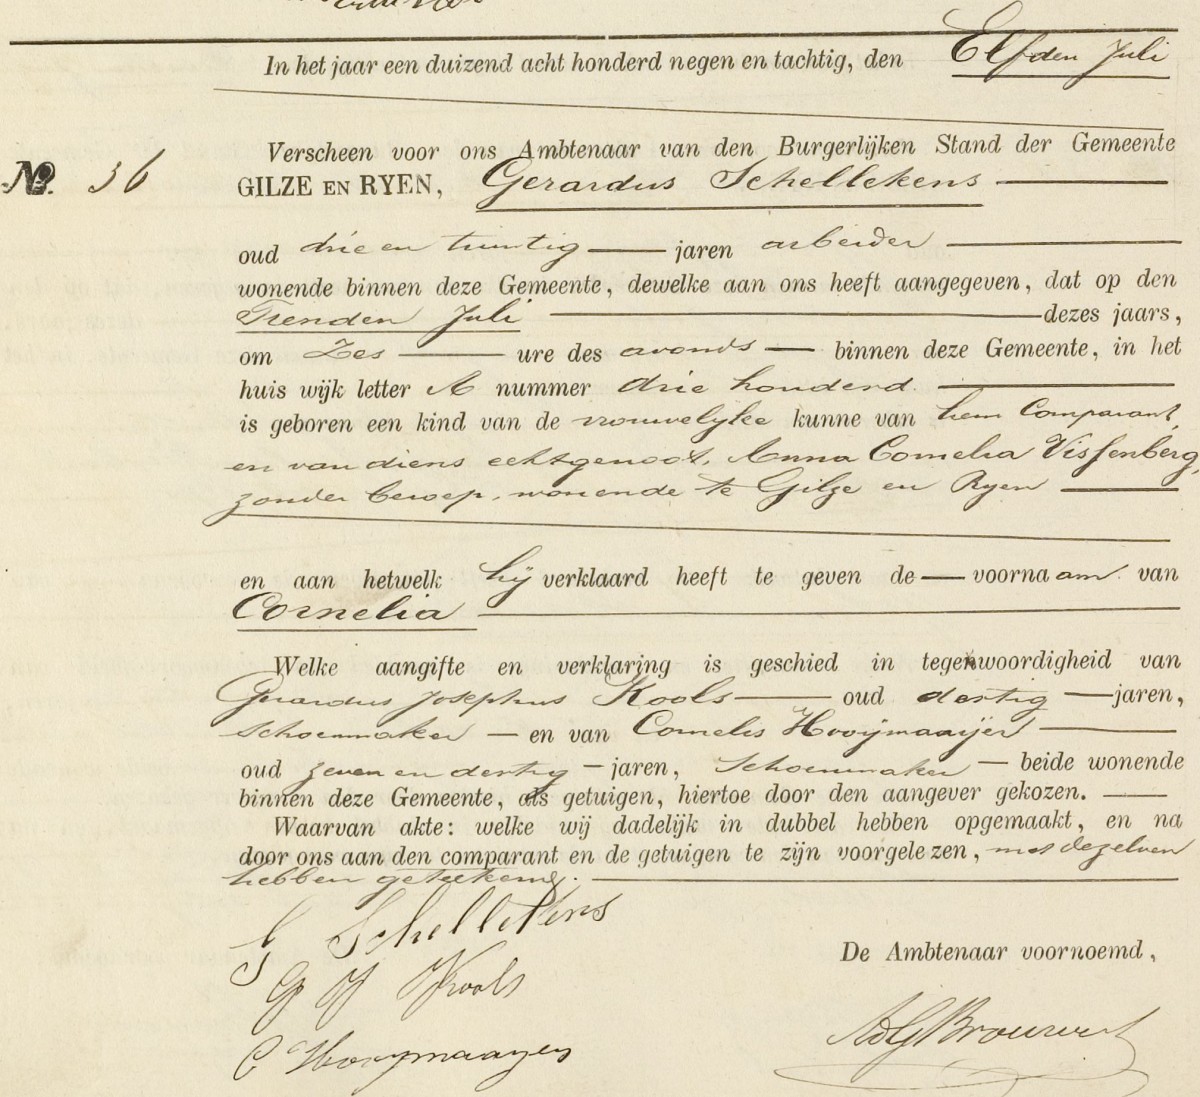 In het jaar een duizend acht honderd negen en tachtig, den Elfden Juli
Verscheen voor ons Ambtenaar van den Burgerlijken Stand der Gemeente
No. 36 GILZE EN RYEN, Gerardus Schellekens
oud drie en twintig jaren arbeider
wonende binnen deze Gemeente, dewelke aan ons heeft aangegeven, dat op den
Tienden Juli dezes jaars,
om Zes ure des avonds binnen deze Gemeente, in het
huis wijk letter A nummer drie honderd.
is geboren een kind van de vrouwelijke kunne van hem Comparant,
en van diens echtgenoot, Anna Cornelia Vissenberg,
zonder beroep, wonende te Gilze en Ryen
en aan hetwelk hij verklaard heeft te geven de voornaam van
Cornelia
Welke aangifte en verklaring is geschied in tegenwoordigheid van
Gerardus Josephus Kools oud dertig jaren,
schoenmaker en van Cornelis Hooijmaaijer
oud zeven en dertig jaren, schoenmaker beide wonende
binnen deze Gemeente, als getuigen, hiertoe door den aangever gekozen.
Waarvan akte: welke wij dadelijk in dubbel hebben opgemaakt, en na
door ons aan den comparant en de getuigen te zijn voorgelezen, met dezelven
hebben geteekend.
G Schellekens
G J Kools
De Ambtenaar voornoemd,
C Hooymaayer